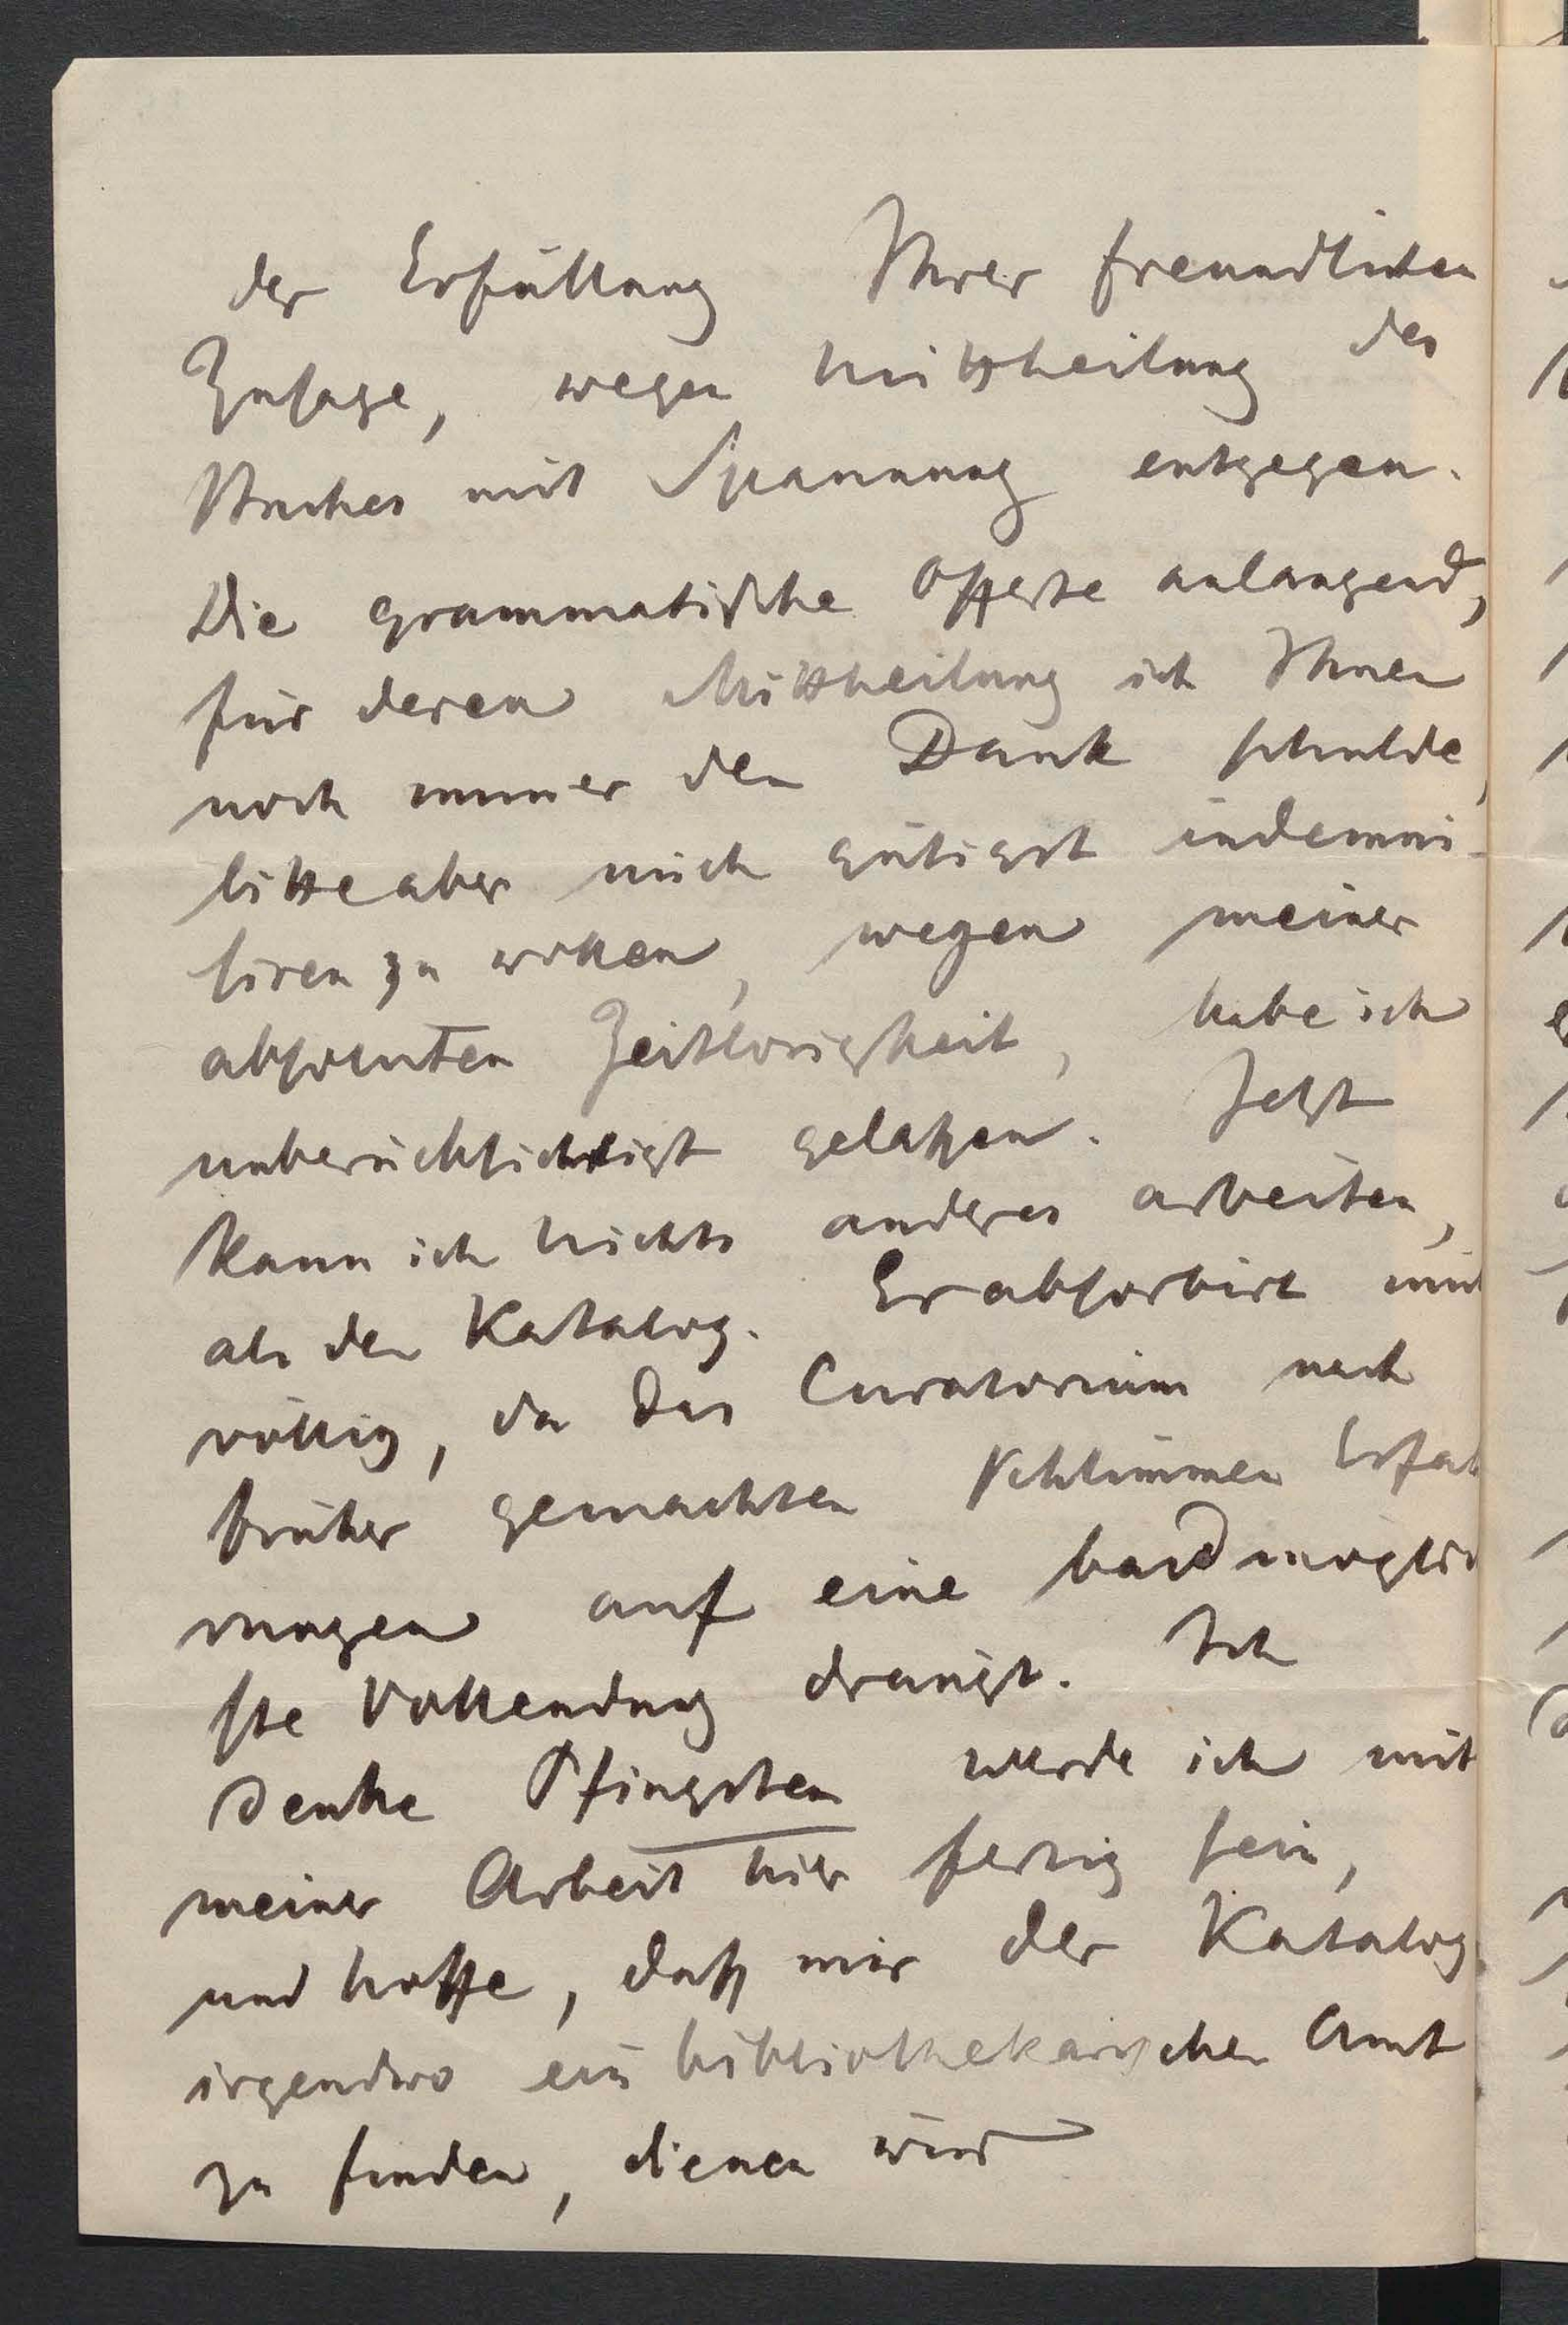 der Erfüllung Ihrer freundlichen
Zusage, wegen Mittheilung des
Buches mit Spannung entgegen.
Die grammatische Offerte anlangend,
für deren Mittheilung ich Ihnen
noch immer den Dank schulde,
bitte aber mich gütigst indemni-
siren zu wollen, wegen meiner
absoluten Zeitlosigkeit, habe ich
unberücksichtigt gelaßen. Jetzt
kann ich nichts anderes arbeiten,
als den Katalog. Er absorbirt mich
völlig, da das Curatorium nach
früher gemachten schlimmen Erfah
rungen auf eine baldmöglich
ste Vollendung drängt. Ich
denke Pfingsten werde ich mit
meiner Arbeit hier fertig sein,
und hoffe, daß mir der Katalog
irgendwo ein bibliothekarisches Amt
zu finden, dienen wird